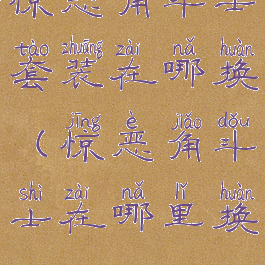 惊恶角斗士
tào zhuāng zài nǎ huàn
套装在哪换
jīng è jiǎo dǒu
(惊恶角斗
shì zài nǎ lǐ huàn
士在哪里换